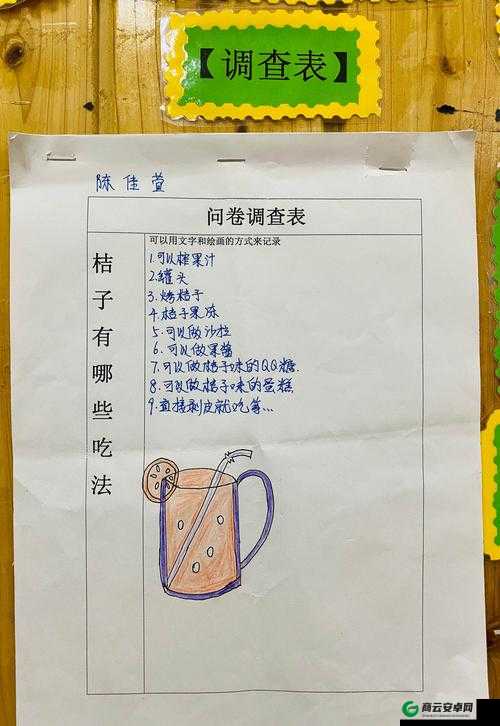 【调查表】
陈佳萱
问卷调查表
桔子有哪些吃法
可以用文字和绘画的方式来记录
1.可以榨果汁
2.罐头
3.烤桔子
4.桔子果冻
5.可以做沙拉
6.可以做果酱
7.可以做桔子味的QQ糖.
8.可以做桔子味的蛋糕
9.直接剥皮就吃等...
商云安卓网